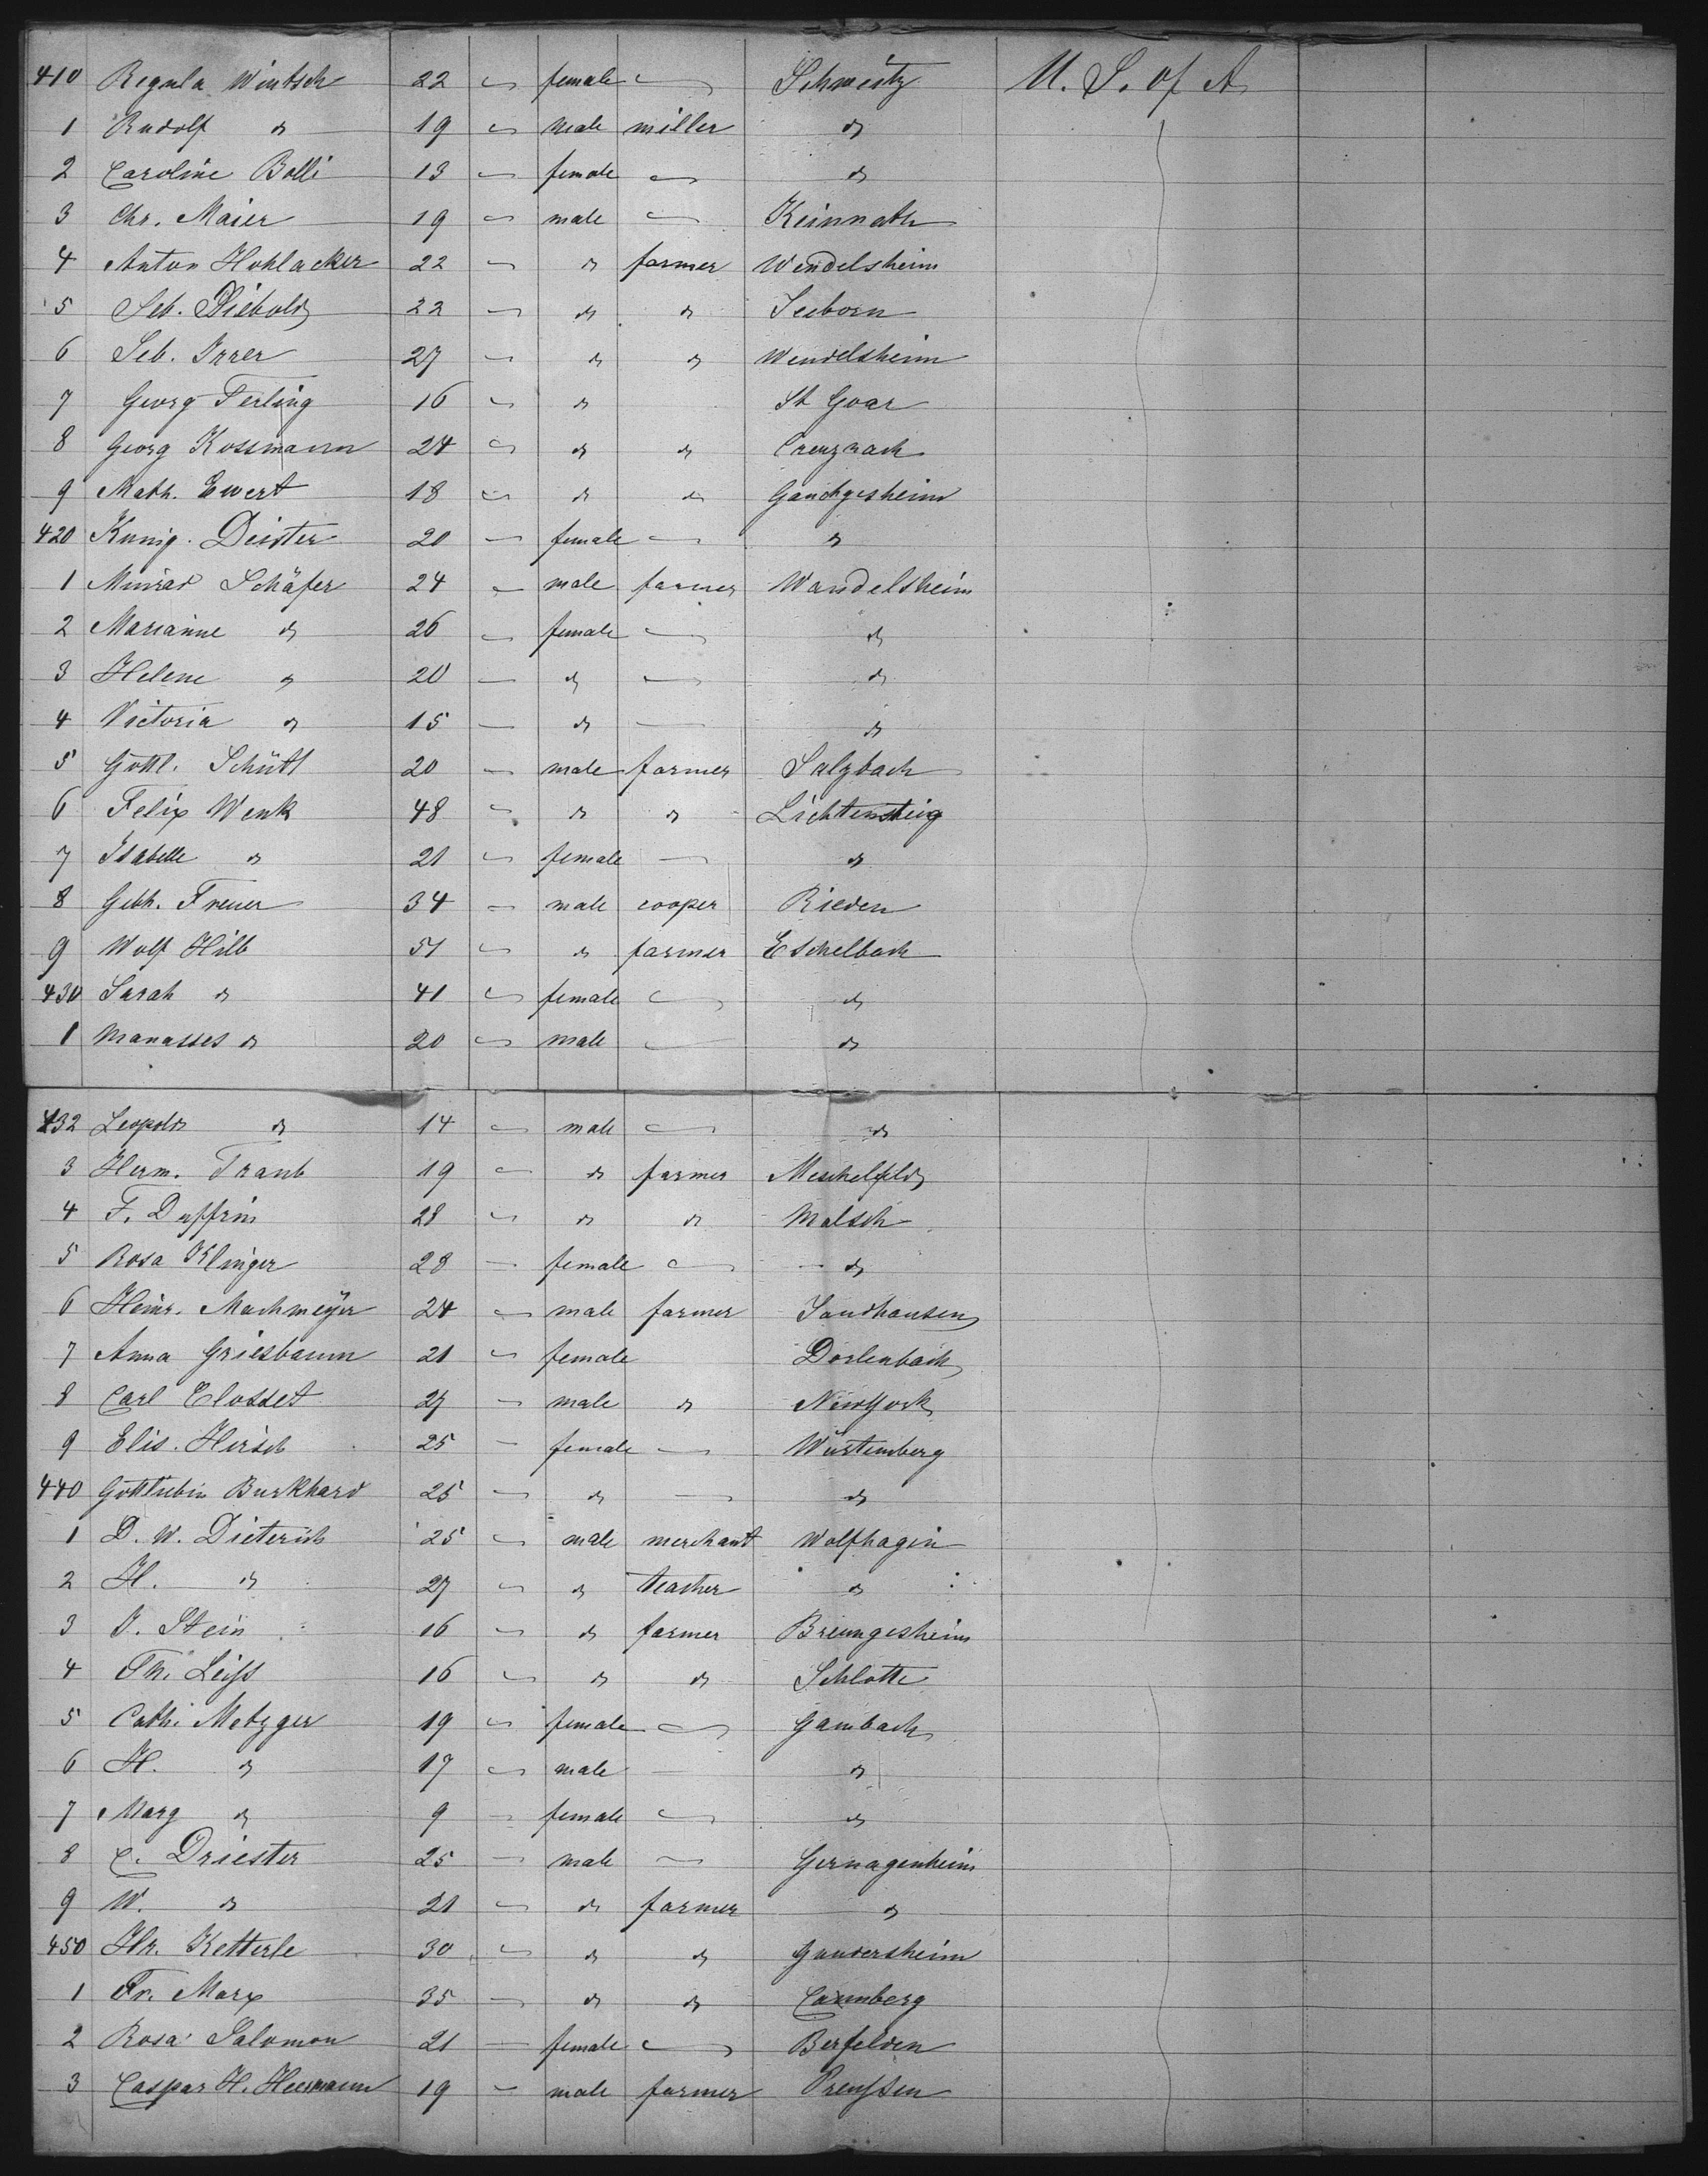 410 Regula Wintsch 22 — female — Schweitz U. S. of A
1 Rudolf do 19 — male miller do
2 Caroline Bolli 13 — female — do
3 Chr. Maier 19 — male — Keinnath
4 Anton Hohlacker 22 — do farmer Wendelsheim
5 Seb. Diebold 22 — do do Seeborn
6 Seb. Irrer 27 — do do Wendelsheim
7 Georg Ferling 16 — do St Goar
8 Georg Kossmann 24 — do do Creuznach
9 Math. Ewert 18 — do do Gauchgesheim
420 Kunig. Deister 20 — female — do
1 Minrad Schäfer 24 — male farmer Wandelsheim
2 Marianne do 26 — female — do
3 Helene do 20 — do — do
4 Victoria do 15 — do — do
5 Gottl. Schütt 20 — male farmer Salzbach
6 Felix Wenk 48 — do do Lichtensteig
7 Isabelle do 21 — female — do
8 Gebh. Freuer 34 — male cooper Rieden
9 Wolf Hilb 51 — do farmer Eschelbach
430 Sarah do 41 — female — do
1 Manasses do 20 — male — do
432 Leopold do 14 — male — do
3 Herm. Traub 19 — do farmer Meschelfeld
4 F. Duffrin 28 — do do Malsch
5 Rosa Klinger 28 — female — do
6 Heinr. Machmeÿer 24 — male farmer Sandhausen
7 Anna Griesbaum 21 — female Dorlenbach
8 Carl Closset 27 — male do NewYork
9 Elis. Hirsch 25 — female — Würtemberg
440 Gottliebin Burkhard 25 — do — do
1 D. W. Dieterich 25 — male merchant Wolfhagin
2 H. do 27 — do teacher do
3 J. Stein 16 — do farmer Breungesheim
4 Th. Leiss 16 — do do Schlotte
5 Cath. Metzger 19 — female — Gambach
6 H. do 17 — male — do
7 Marg do 9 — female — do
8 C. Driester 25 — male — Gernagenheim
9 W. do 21 — do farmer do
450 Hr. Ketterle 30 — do do Gundersheim
1 Fr. Marx 35 — do do Camberg
2 Rosa Salomon 21 — female — Berfelden
3 Caspar H. Heermann 19 — male farmer Preussen